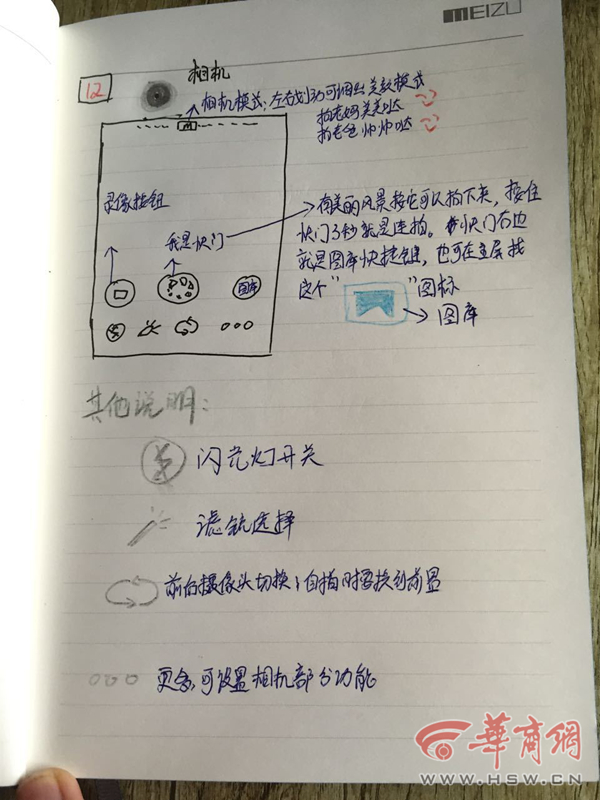 MEIZU
12
相机
相机模式,左右划动可调出关于模式
拍老妈美美哒
拍老爸帅帅哒
M
录像按钮
有美丽风景按它可以拍下来,按住
快门3秒就是连拍。快门右边
我是快门
就是图库快捷键,也可在主屏找
这个“ ”图标
图库
图库
其他说明:
闪光灯开关
滤镜选择
前后摄像头切换;自拍时需换到前置
更多,可设置相机部分功能
華商網
WWW.HSW.CN